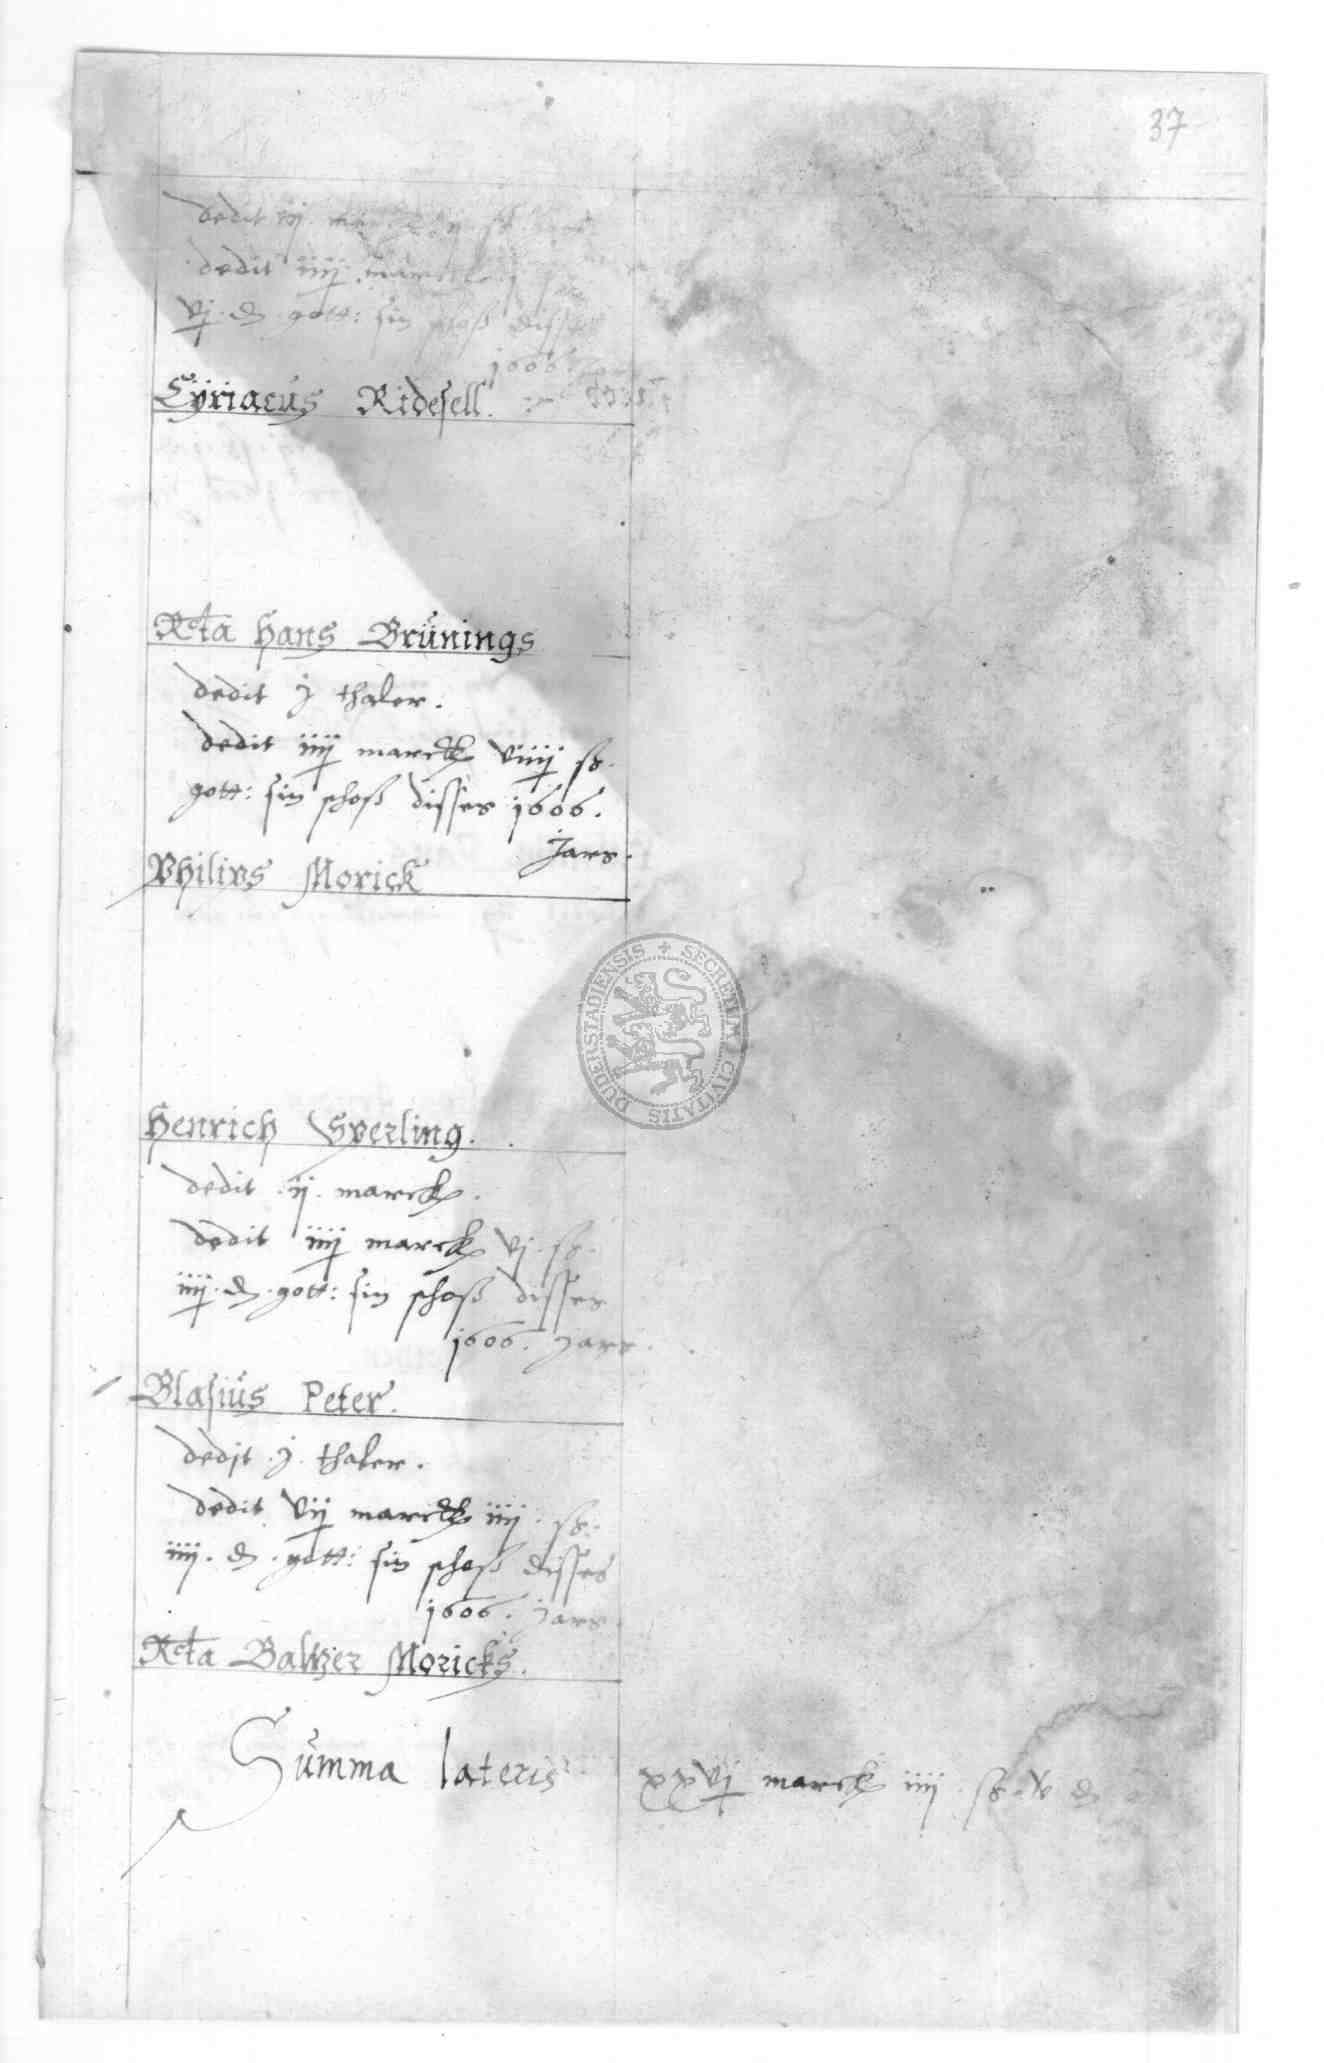 37
dedit iij marck
dedit iiij marck
vj ₰ gott: sin schoß disses
1606. Jars
Cyriacus Ridesell.
Rcta Hans Brünings
dedit j thaler.
dedit iiij marck viiij sß.
gott: sin schoß disses 1606.
Jars.
Philips Morick
SECRETUM CIVITATIS DUDERSTADIENSIS
Henrich Sperling.
dedit .ij. marck.
dedit iiij marck vj. sß.
iiij. ₰. gott: sin schoß disses
1606. Jars.
Blasius Peter.
dedit .j. thaler.
dedit vij marck iiij. sß.
iiij. ₰. gott: sin schoß disses
1606. Jars.
Rcta Baltzer Moricks.
Summa lateris xxvj marck iiij sß. v ₰